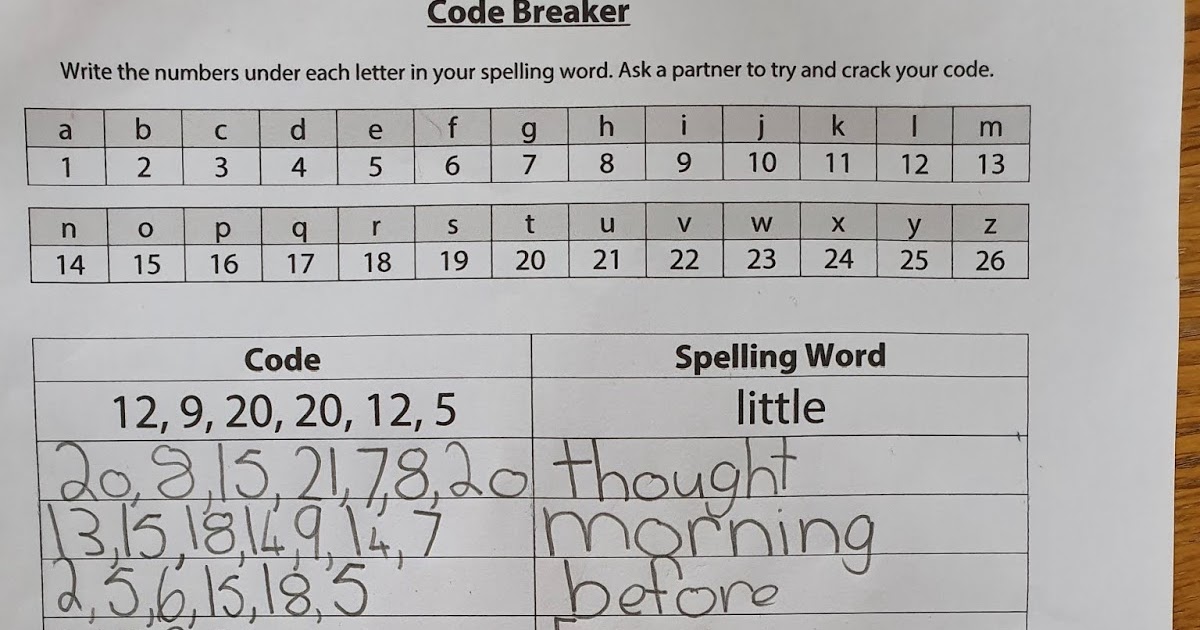 Code Breaker
Write the numbers under each letter in your spelling word. Ask a partner to try and crack your code.
a b c d e f g h i j k l m
1 2 3 4 5 6 7 8 9 10 11 12 13
n o p q r s t u v w x y z
14 15 16 17 18 19 20 21 22 23 24 25 26
Code Spelling Word
12, 9, 20, 20, 12, 5 little
20, 8, 15, 21, 7, 8, 20 thought
13, 15, 18, 14, 9, 14, 7 morning
2, 5, 6, 15, 18, 5 before